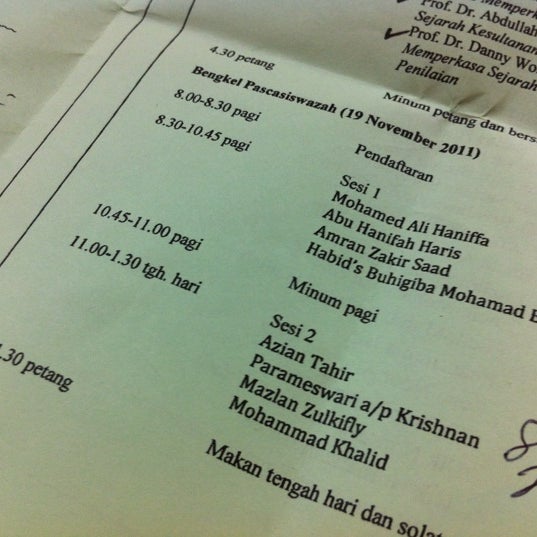 Memperk
Prof. Dr. Abdullah
Sejarah Kesultanan
Prof. Dr. Danny Wo
Memperkasa Sejarah
Penilaian
4.30 petang
Minum petang dan bers
Bengkel Pascasiswazah (19 November 2011)
8.00-8.30 pagi Pendaftaran
8.30-10.45 pagi Sesi 1
Mohamed Ali Haniffa
Abu Hanifah Haris
Amran Zakir Saad
Habid's Buhigiba Mohamad
10.45-11.00 pagi Minum pagi
11.00-1.30 tgh. hari Sesi 2
Azian Tahir
Parameswari a/p Krishnan
Mazlan Zulkifly
Mohammad Khalid
.30 petang Makan tengah hari dan solat